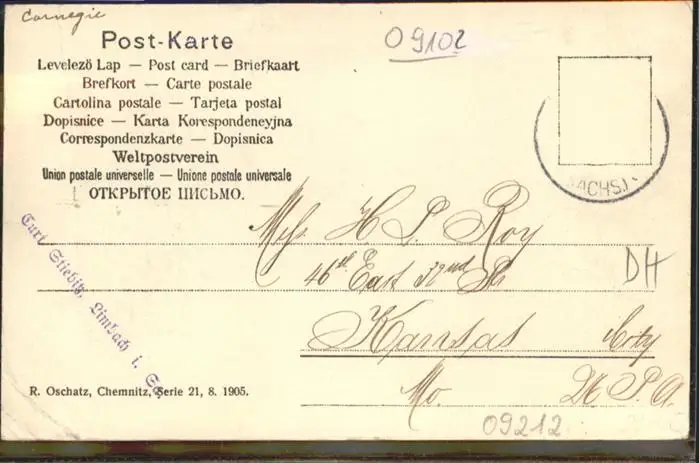 Carnegie
09102
Post-Karte
Levelező Lap — Post card — Briefkaart
Brefkort — Carte postale
Cartolina postale — Tarjeta postal
Dopisnice — Karta Korespondeneyjna
Correspondenzkarte — Dopisnica
Weltpostverein
Union postale universelle — Unione postale universale
ОТКРЫТОЕ ПИСЬМО.
ACHS.)
H. S. Roy
46th East 32nd St
DH
Kansas City
Mo. U.S.A.
Curt Stiebitz, Limbach i. Sa.
R. Oschatz, Chemnitz, Serie 21, 8. 1905.
09212